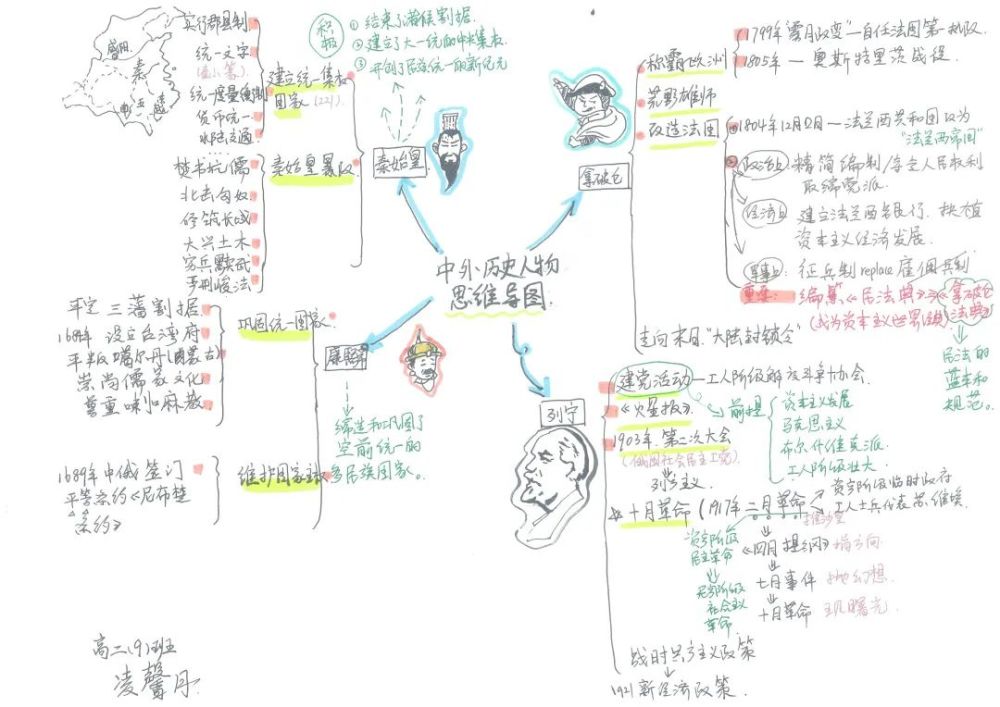 中外历史人物
思维导图
秦始皇
积极
① 结束了诸侯割据.
② 建立了大一统的中央集权
③ 开创了民族统一的新纪元
建立统一集权
国家 (221).
实行郡县制
统一文字
(小篆)
统一度量衡制
货币统一
水陆交通
咸阳
秦
秦始皇暴政
焚书坑儒
北击匈奴
修筑长城
大兴土木
穷兵黩武
严刑峻法
康熙
巩固统一国家
平定三藩割据
1684年 设立台湾府
平叛噶尔丹(内蒙古)
崇尚儒家文化
尊重喇嘛教
缔造和巩固了
空前统一的
多民族国家。
维护国家主权
1689年中俄签订
平等条约《尼布楚
条约》
拿破仑
称霸欧洲
1799年雾月政变—自任法国第一执政
1805年 — 奥斯特里茨战役
荒野雄师
改造法国
—法兰西共和国改为
"法兰西帝国"
政治上: 精简编制/享立人民权利
取缔党派
经济上 建立法兰西银行. 扶植
资本主义经济发展.
军事上: 征兵制replace雇佣兵制
重要: 编纂《民法典》→《拿破仑
法典》
民法的
蓝本和
规范。
走向末日"大陆封锁令"
列宁
建党活动—工人阶级解放斗争协会.
《火星报》
前提
资本主义发展
马克思主义
布尔什维克派
工人阶级壮大
1903年.第二次大会
(俄国社会民主工党)
列宁主义
十月革命 (1917年 二月革命
资产阶级临时政府
工人士兵代表苏维埃
推沙皇
《四月提纲》 指方向
七月事件 抛幻想
十月革命 现曙光
资产阶级
民主革命
无产阶级
社会主义
革命
战时共产主义政策
1921新经济政策.
高二(9)班
凌馨丹